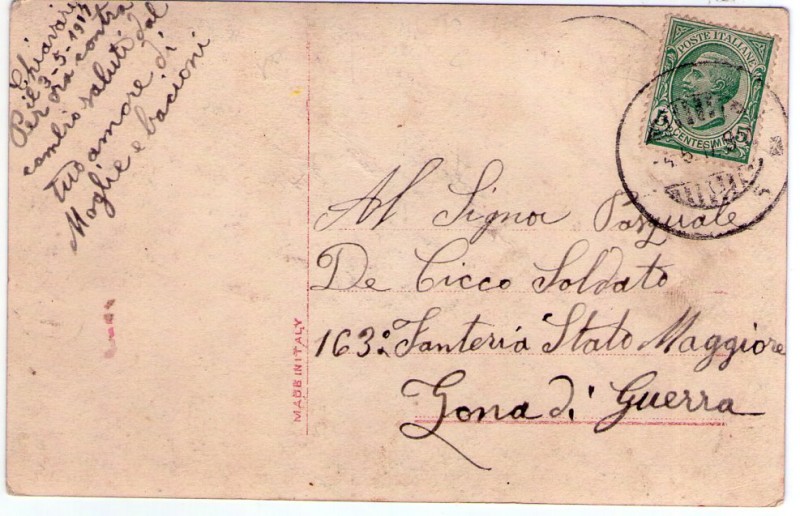 Chiavari
il 3-5-1917
Per ora contra
cambio saluti dal
tuo amore di
Moglie e bacioni
POSTE ITALIANE
5 5
CENTESIMI
Al Signor Pasquale
De Cicco Soldato
163º Fanteria Stato Maggiore
Zona di Guerra
MADE IN ITALY